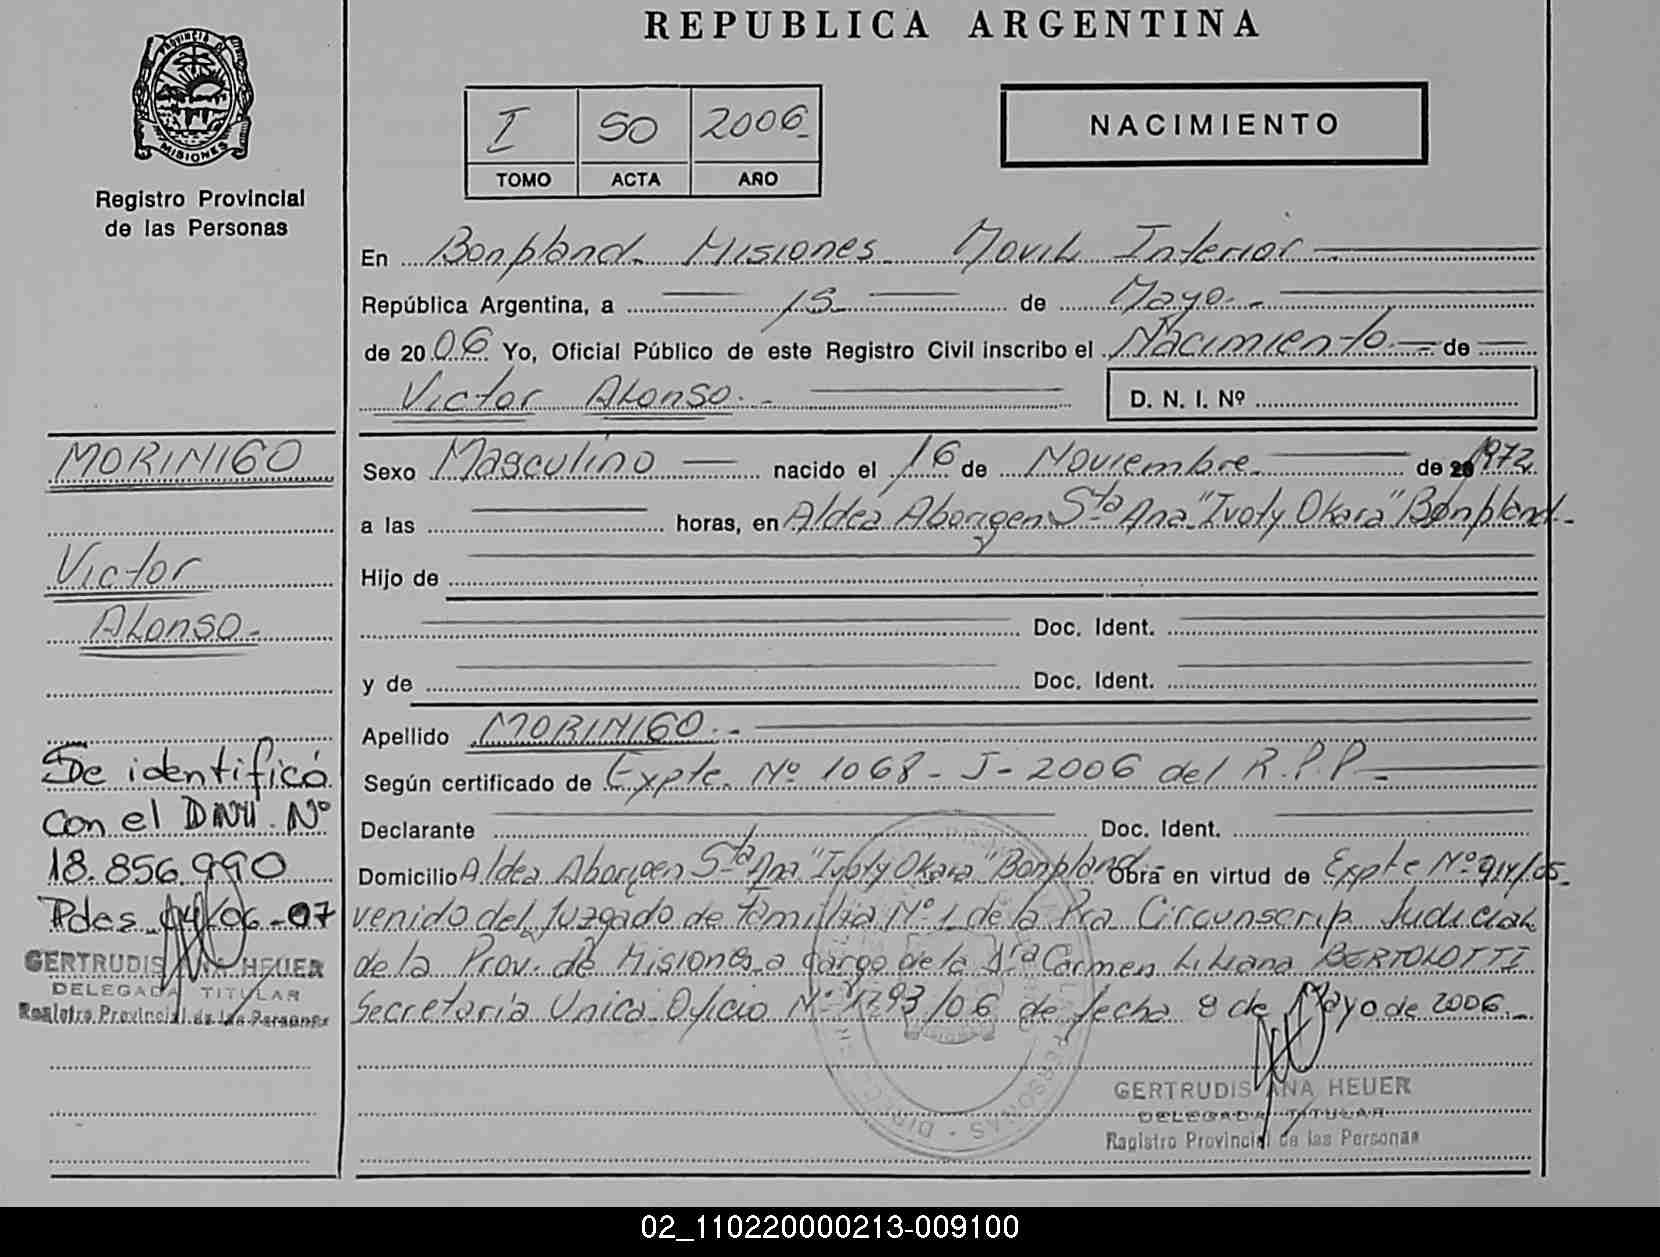 REPUBLICA ARGENTINA
PROVINCIA DE
MISIONES
Registro Provincial
de las Personas
I 50 2006
TOMO ACTA AÑO
NACIMIENTO
En Bonpland Misiones Movil Interior
República Argentina, a 15 de Mayo
de 2006 Yo, Oficial Público de este Registro Civil inscribo el Nacimiento de
Victor Alonso.- D. N. I. Nº
MORINIGO
Victor
Alonso.-
Sexo Masculino nacido el 16 de Noviembre de 1972
a las horas, en Aldea Aborigen Sta Ana "Ivoty Okara" Bonpland.-
Hijo de
Doc. Ident.
y de Doc. Ident.
Apellido MORINIGO.-
Según certificado de Expte. Nº 1068-J-2006 del R.P.P.-
Declarante Doc. Ident.
Domicilio Aldea Aborigen Sta Ana "Ivoty Okara" Bonpland. Obra en virtud de Expte Nº 914/05-
venido del Juzgado de Familia Nº 1 de la Pra Circunscrip. Judicial
de la Prov. de Misiones a cargo de la Dra Carmen Liliana BERTOLOTTI
Secretaría Unica Oficio Nº 1793/06 de fecha 8 de Mayo de 2006.-
GERTRUDIS ANA HEUER
DELEGADA TITULAR
Registro Provincial de las Personas
Se identificó
con el DNI Nº
18.856.990
Pdas 04-06-07
GERTRUDIS ANA HEUER
DELEGADA TITULAR
Registro Provincial de las Personas
02_110220000213-009100